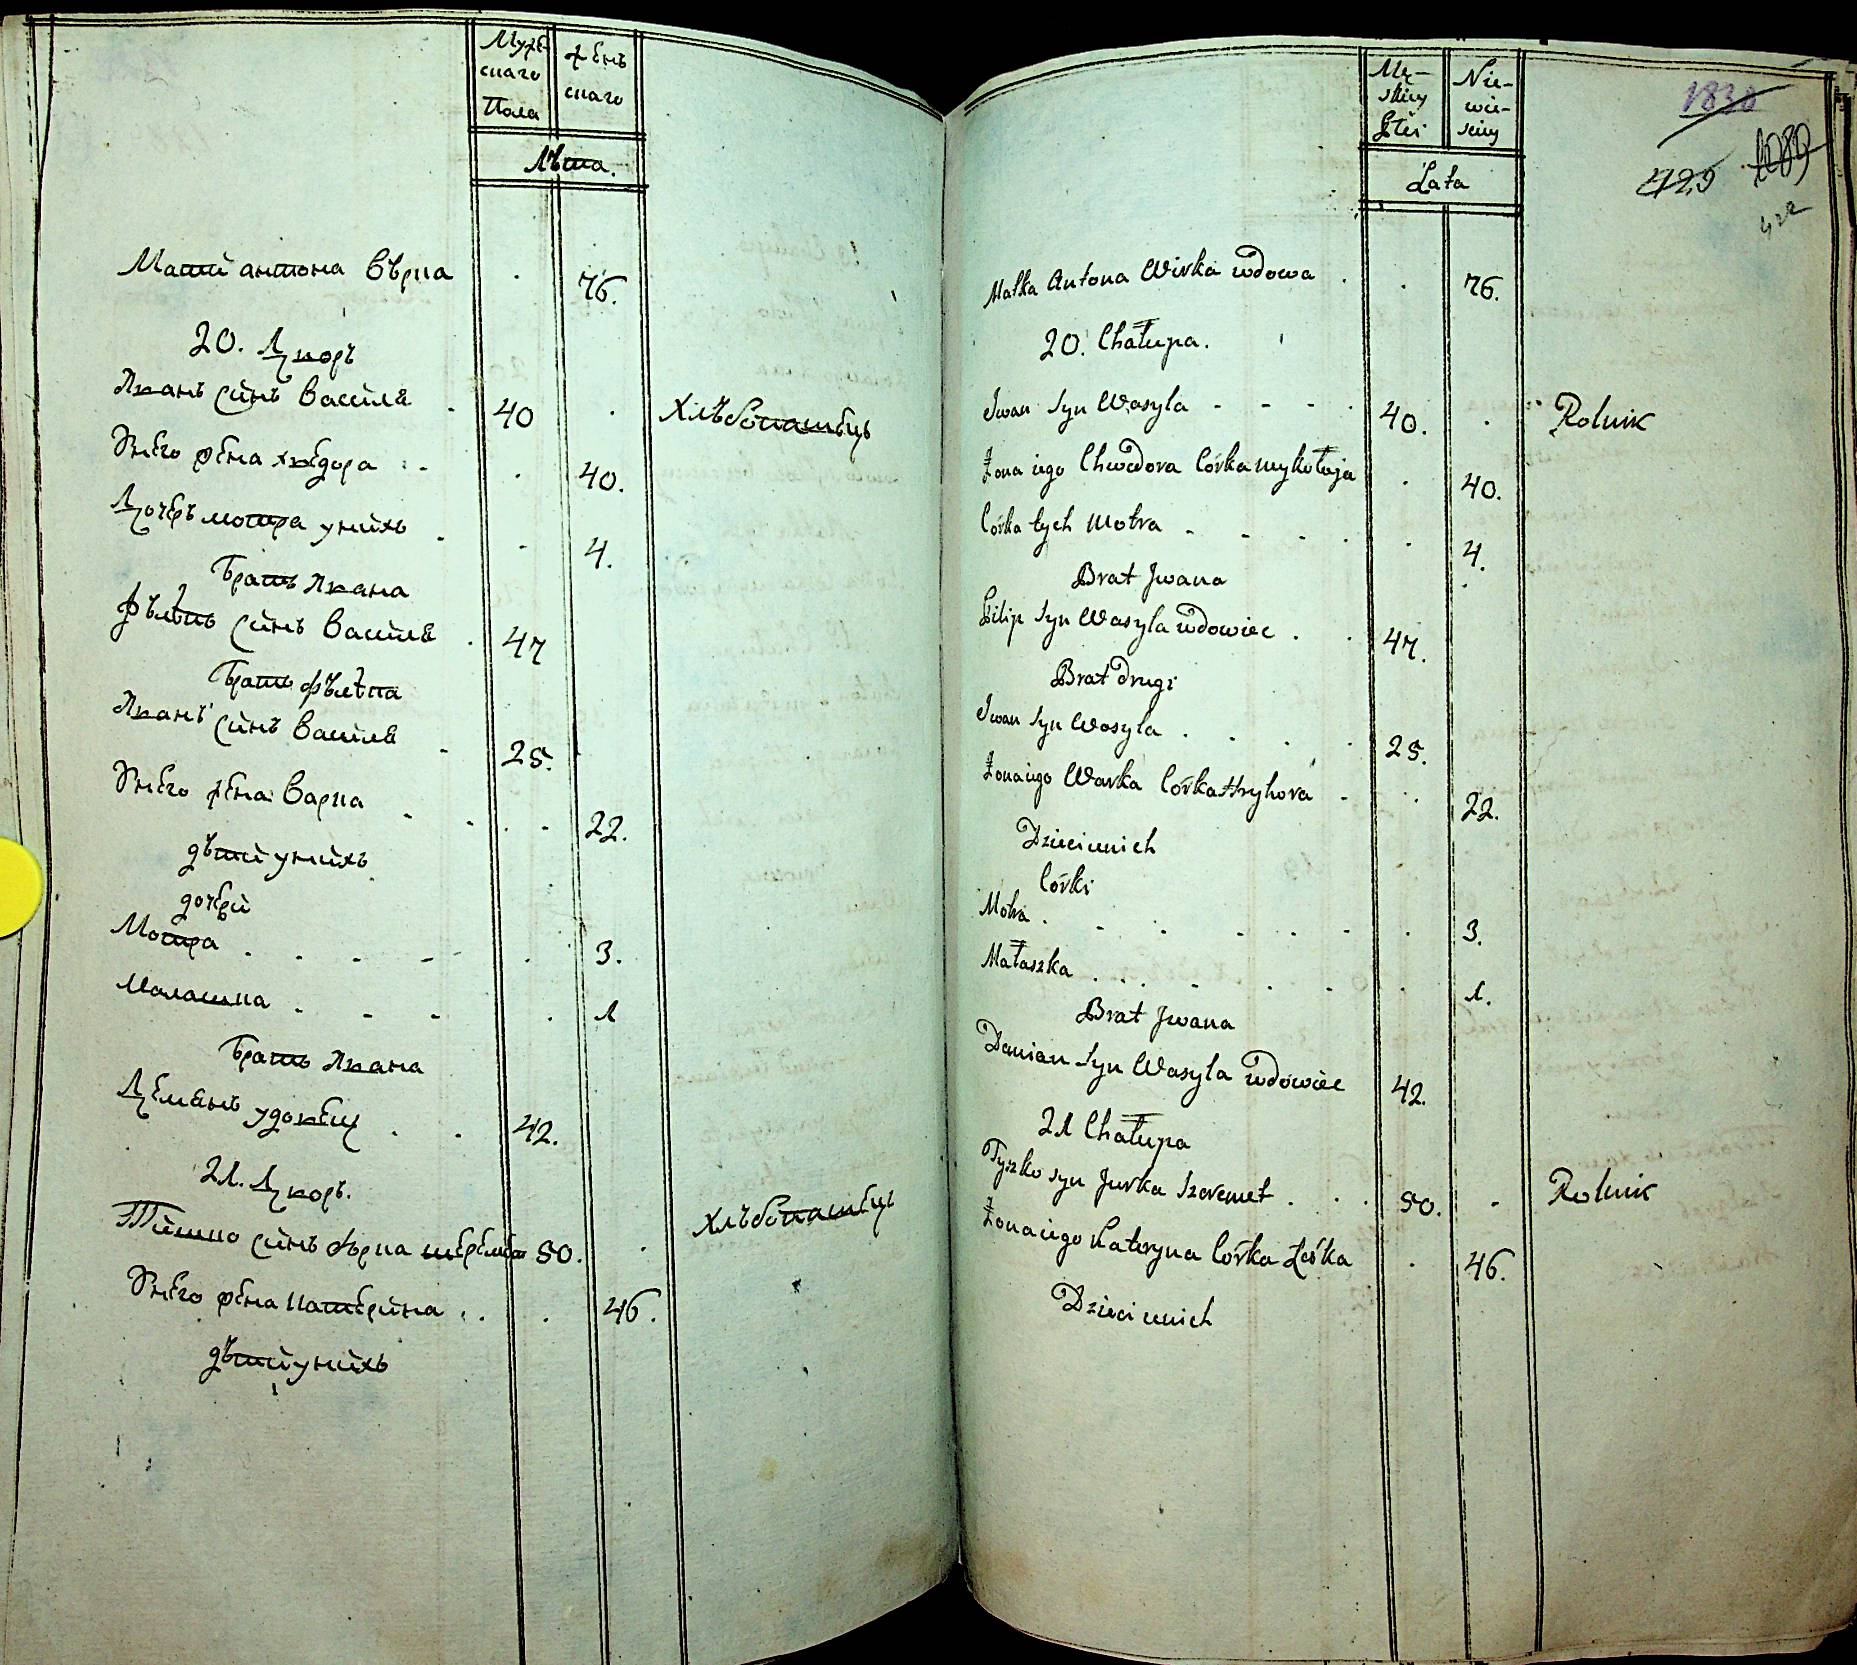 Мужескаго Пола
женскаго
Лѣта.
Мати антона Вѣрка . 76.
20. Двор
Иванъ синъ Василя . 40 . Хлѣбопашець
Унего жена хведора . . 40.
Дочерь мотра унихъ . . 4.
Братъ Ивана
Филипъ синъ Василя . 47
Братъ Филипа
Иванъ синъ Василя . 25.
Унего жена Варка . . . . 22.
дѣти унихъ
дочери
Мотра . . . . . 3.
Малашка . . . . 1
Братъ Ивана
Демянъ удовец . . 42.
21. Двор.
Тишко синъ Юрка шеремет 50. . хлѣбопашець
Унего жена Катерина . . . 46.
дѣти унихъ
Męskiey Płci
Niewieściey
Lata
1838
429
1089
422
Matka Antona Wirka wdowa . . 76.
20. Chałupa.
Jwan Syn Wasyla - - - . 40. . Rolnik
Żona iego Chwedora Córka mykołaja . 40.
Córka tych Motra - - - . . 4.
Brat Jwana
Filip Syn Wasyla wdowiec . . 47.
Brat Drugi
Jwan Syn Wasyla . . . . 25.
Żona iego Warka Córka Hryhora - . 22.
Dzieci u nich
Córki
Motra . - - - - - . 3.
Małaszka . . . . . . . 1.
Brat Jwana
Damian Syn Wasyla wdowiec 42.
21 Chałupa
Tyszko syn Jurka Szeremet . . . 50. - Rolnik
Żona iego Kateryna Córka Leśka . 46.
Dzieci u nich